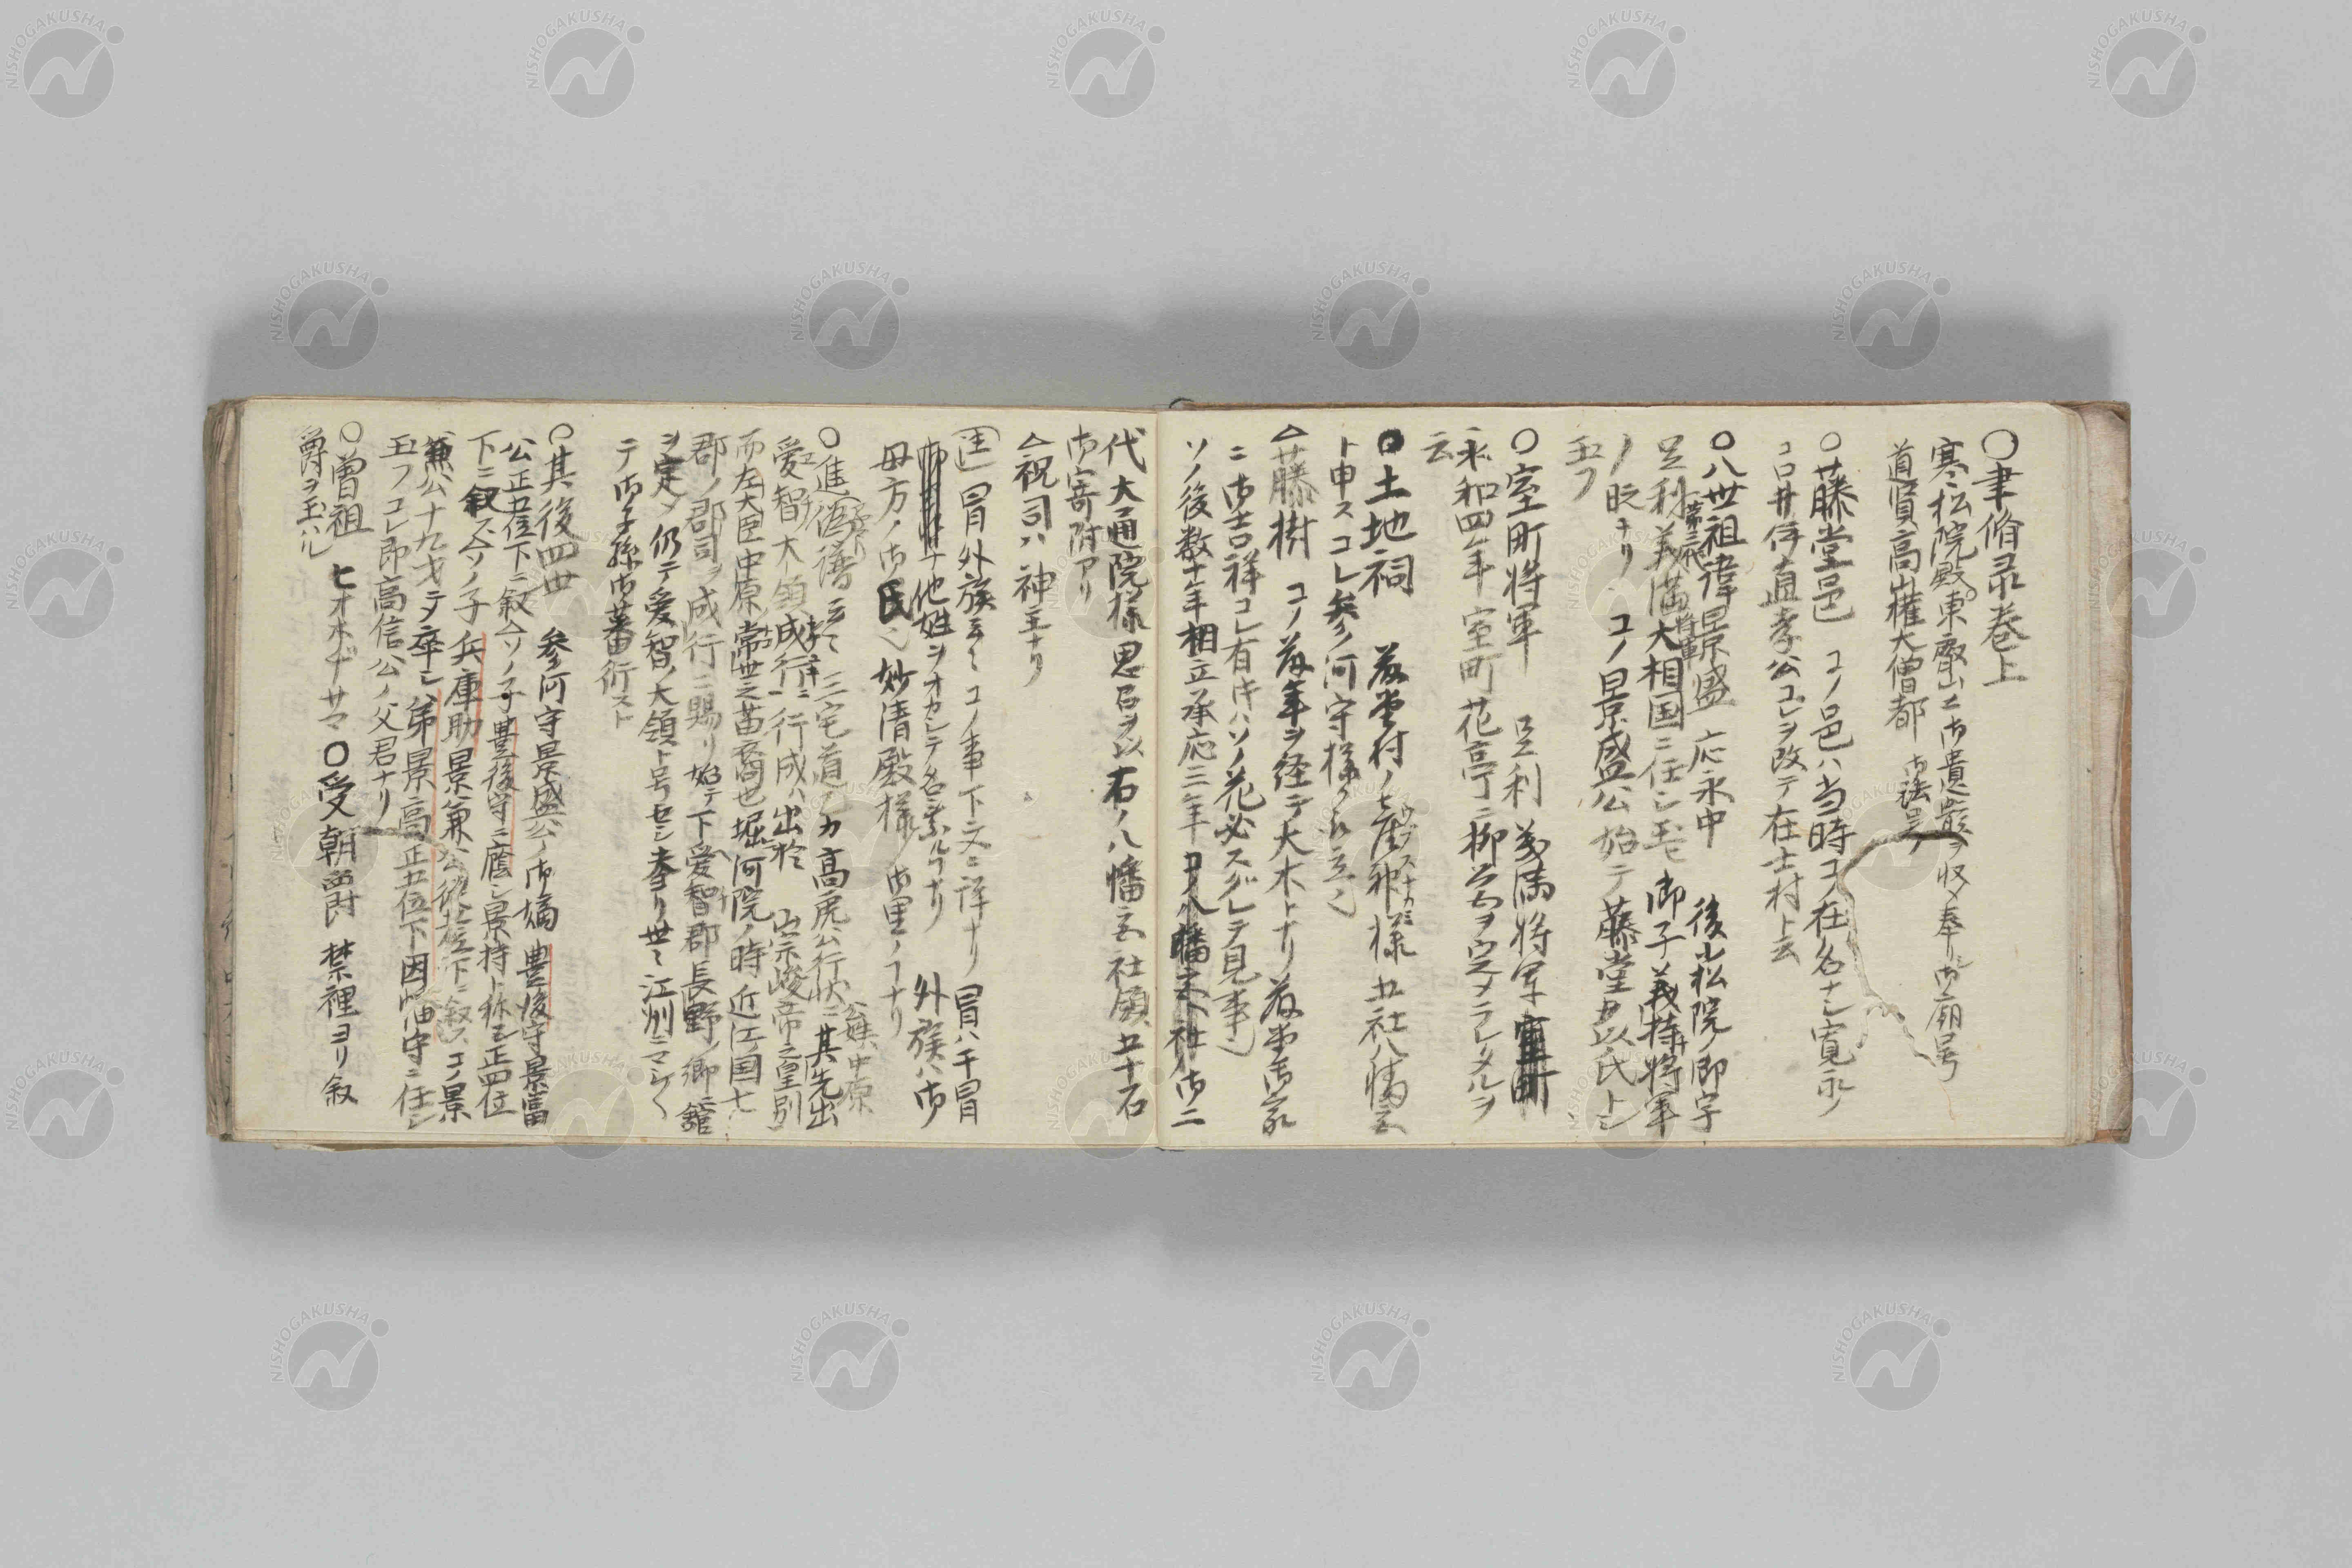 ○聿脩录巻上
寒松院殿東叡山エ御遺骸ヲ收メ奉ルシ御廟号
道賢高山権大僧都 御法号
○藤堂邑 コノ邑ハ当時コノ在名ナシ寛永ノ
コロ井伊直孝公コレヲ改テ在士村ト云
○八世祖諱景盛 応永中 後小松院ノ御宇
足利義満大相国ニ任シ玉ヒ御子義持将軍
ノ時ナリ コノ景盛公始テ藤堂ヲ以氏トシ
玉フ
○室町将軍 足利義満将軍
永和四年室町花亭ニ柳営ヲ定メラレタルヲ
云
○土地祠 藤堂村ノ産神様 五社八幡宮
ト申スコレ参河守様
△藤樹 コノ藤年ヲ経テ大木トナリ藤堂御家
ニ御吉祥コレ有トキハソノ花必スグレテ見事也
ソノ後数十年相立承応三年 御二
代大通院様思召ヲ以右ノ八幡宮社領五十石
御寄附アリ
△祝司ハ神主ナリ
冒外族云々 コノ事下文ニ詳ナリ 冒ハ干冒
他姓ヲオカシテ名乗ルナリ 外族ハ御
母方ノ御氏也 妙清殿様ノ御里ノナリ
○進譜云々 三宅道乙カ高虎公行状ニ其先出
公姓中原
愛智大領成行ニ行成ハ出於 宗峻帝之皇別
而左大臣中原常世之苗裔也堀河院ノ時近江国七
郡ノ郡司ヲ成行ニ賜リ始テ下愛智郡長野ノ郷ニ舘
ヲ定メ仍テ愛智ノ大領ト号セシ 世々江州ニマシ〱
テ御子孫御蕃衍スト
○其後四世 参河守景盛公ノ御嫡豊後守景富
公正五位下ニ叙ソノ子豊後守ニ景持ト称シ正四位
下ニ叙スソノ子兵庫助景兼公従五位下ニ叙スコノ景
兼公十九才ニテ卒シ弟景高正五位下因幡守ニ任シ
玉フコレ即高信公ノ父君ナリ
○曽祖 ヒオホヂサマ ○受朝爵 禁裡ヨリ叙
爵ヲ玉ハル
NISHOGAKUSHA